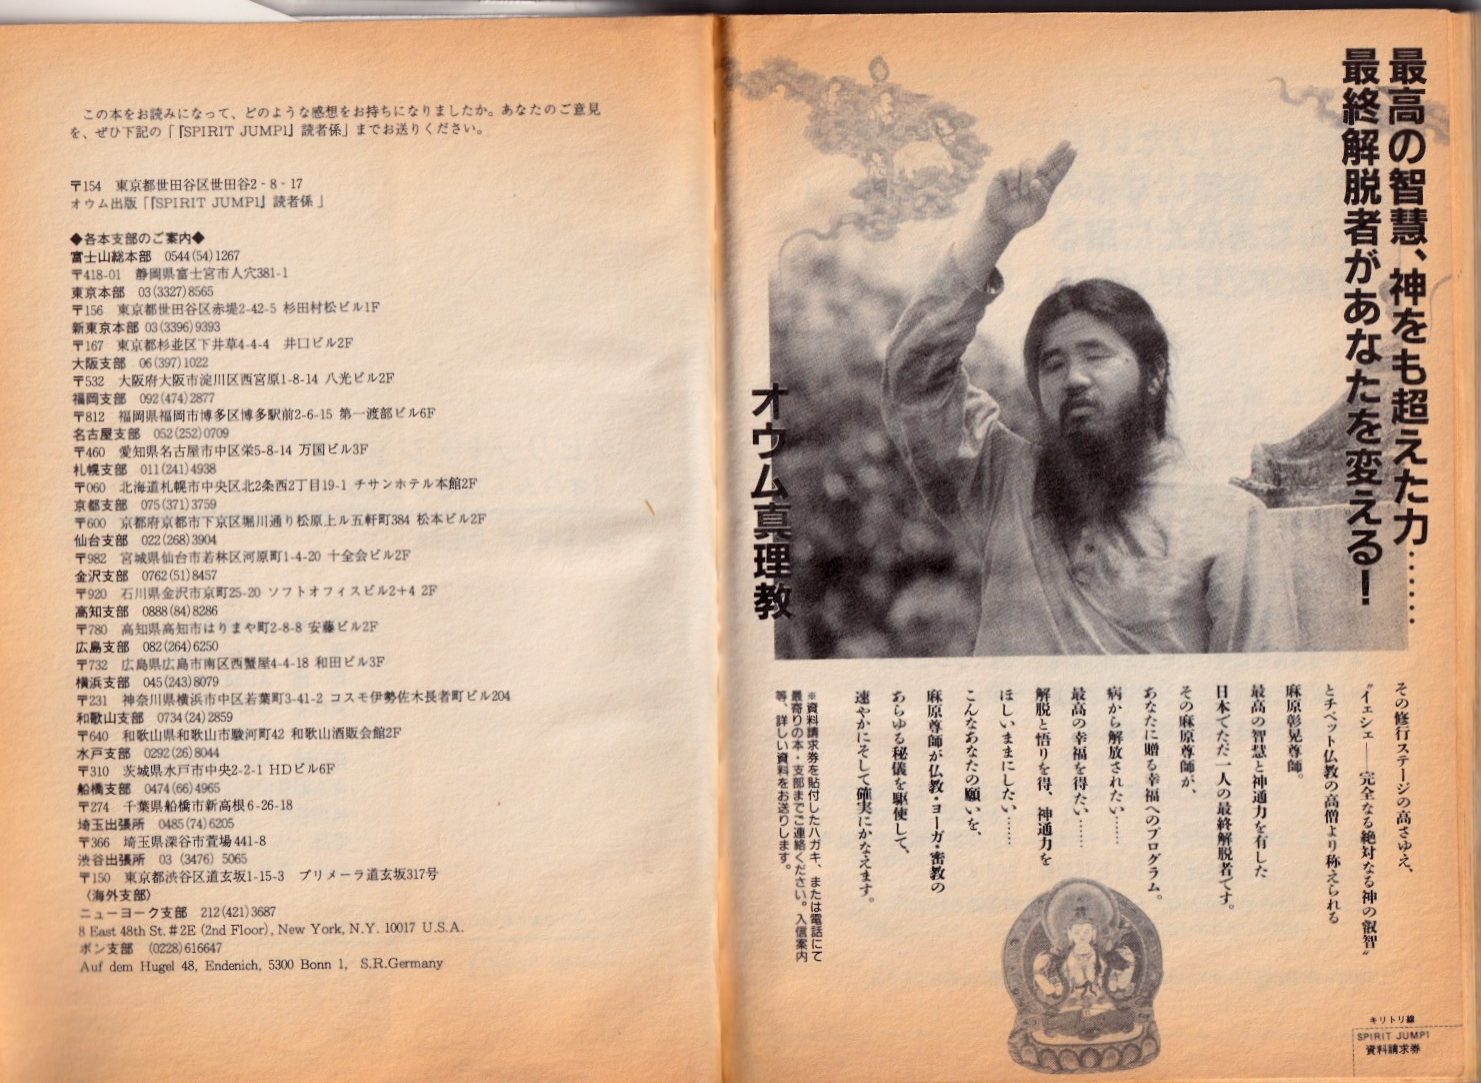 この本をお読みになって、どのような感想をお持ちになりましたか。あなたのご意見
を、ぜひ下記の「『SPIRIT JUMP1』読者係」までお送りください。
〒154　東京都世田谷区世田谷2-8-17
オウム出版「『SPIRIT JUMP1』読者係」
◆各本支部のご案内◆
富士山総本部　0544(54)1267
〒418-01　静岡県富士宮市人穴381-1
東京本部　03(3327)8565
〒156　東京都世田谷区赤堤2-42-5 杉田村松ビル1F
新東京本部 03(3396)9393
〒167　東京都杉並区下井草4-4-4　井口ビル2F
大阪支部　06(397)1022
〒532　大阪府大阪市淀川区西宮原1-8-14 八光ビル2F
福岡支部　092(474)2877
〒812　福岡県福岡市博多区博多駅前2-6-15 第一渡部ビル6F
名古屋支部　052(252)0709
〒460　愛知県名古屋市中区栄5-8-14 万国ビル3F
札幌支部　011(241)4938
〒060　北海道札幌市中央区北2条西2丁目19-1 チサンホテル本館2F
京都支部　075(371)3759
〒600　京都府京都市下京区堀川通り松原上ル五軒町384 松本ビル2F
仙台支部　022(268)3904
〒982　宮城県仙台市若林区河原町1-4-20 十全会ビル2F
金沢支部　0762(51)8457
〒920　石川県金沢市京町25-20 ソフトオフィスビル2+4 2F
高知支部　0888(84)8286
〒780　高知県高知市はりまや町2-8-8 安藤ビル2F
広島支部　082(264)6250
〒732　広島県広島市南区西蟹屋4-4-18 和田ビル3F
横浜支部　045(243)8079
〒231　神奈川県横浜市中区若葉町3-41-2 コスモ伊勢佐木長者町ビル204
和歌山支部　0734(24)2859
〒640　和歌山県和歌山市駿河町42 和歌山酒販会館2F
水戸支部　0292(26)8044
〒310　茨城県水戸市中央2-2-1 HDビル6F
船橋支部　0474(66)4965
〒274　千葉県船橋市新高根6-26-18
埼玉出張所　0485(74)6205
〒366　埼玉県深谷市萱場441-8
渋谷出張所　03 (3476) 5065
〒150　東京都渋谷区道玄坂1-15-3　プリメーラ道玄坂317号
〈海外支部〉
ニューヨーク支部　212(421)3687
8 East 48th St.＃2E (2nd Floor), New York, N.Y. 10017 U.S.A.
ボン支部　(0228)616647
Auf dem Hugel 48, Endenich, 5300 Bonn 1,　S.R.Germany
最高の智慧、神をも超えた力……
最終解脱者があなたを変える！
オウム真理教
その修行ステージの高さゆえ、
〝イェシェ――完全なる絶対なる神の叡智〟
とチベット仏教の高僧より称えられる
麻原彰晃尊師。
最高の智慧と神通力を有した
日本でただ一人の最終解脱者です。
その麻原尊師が、
あなたに贈る幸福へのプログラム。
病から解放されたい……
最高の幸福を得たい……
解脱と悟りを得、神通力を
ほしいままにしたい……
こんなあなたの願いを、
麻原尊師が仏教・ヨーガ・密教の
あらゆる秘儀を駆使して、
速やかにそして確実にかなえます。
※資料請求券を貼付したハガキ、または電話にて
最寄りの本・支部までご連絡ください。入信案内
等、詳しい資料をお送りします。
キリトリ線
SPIRIT JUMP1
資料請求券